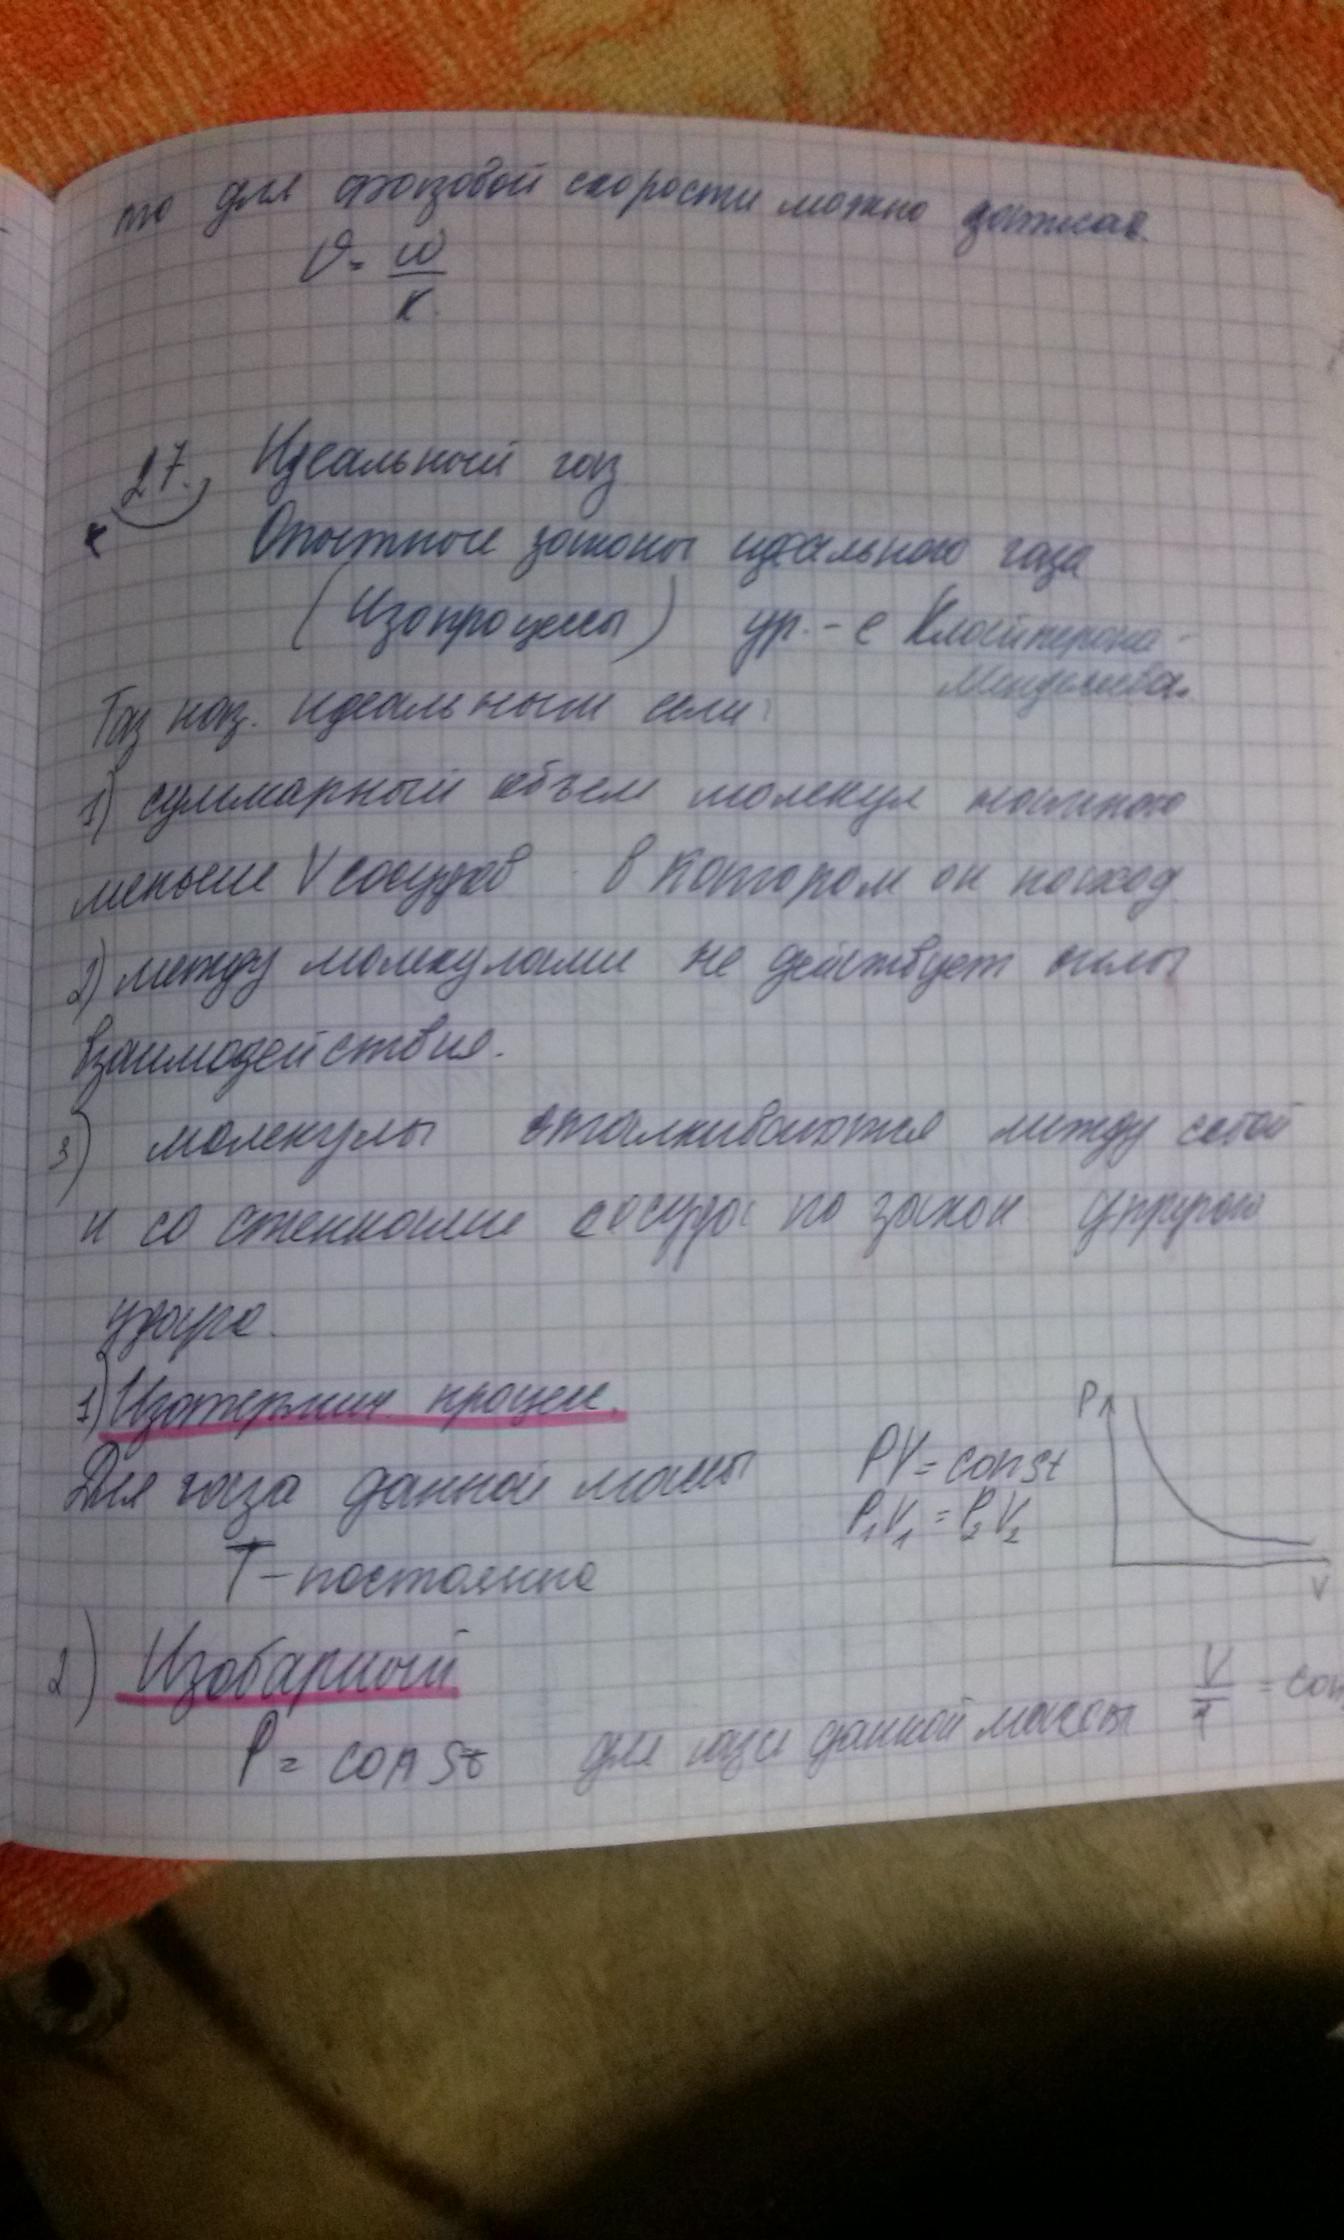 то для фазовой скорости можно записав.
υ = ω / к.
27. Идеальный газ
Опытные законы идеального газа
(Изопроцессы) ур.-е Клайперона-
Менделеева.
Газ наз. идеальным если:
1) суммарный объем молекул
меньше V сосудов в котором он наход.
2) между молекулами не действует силы
взаимодействия.
3) молекулы сталкиваются между собой
и со стенками сосуда по закон упругого
удара.
1) Изотермич. процесс.
Для газа данной массы
PV = const
P₁V₁ = P₂V₂
P
V
T - постоянна
2) Изобарный
P = const для газа данной массы V/T = con